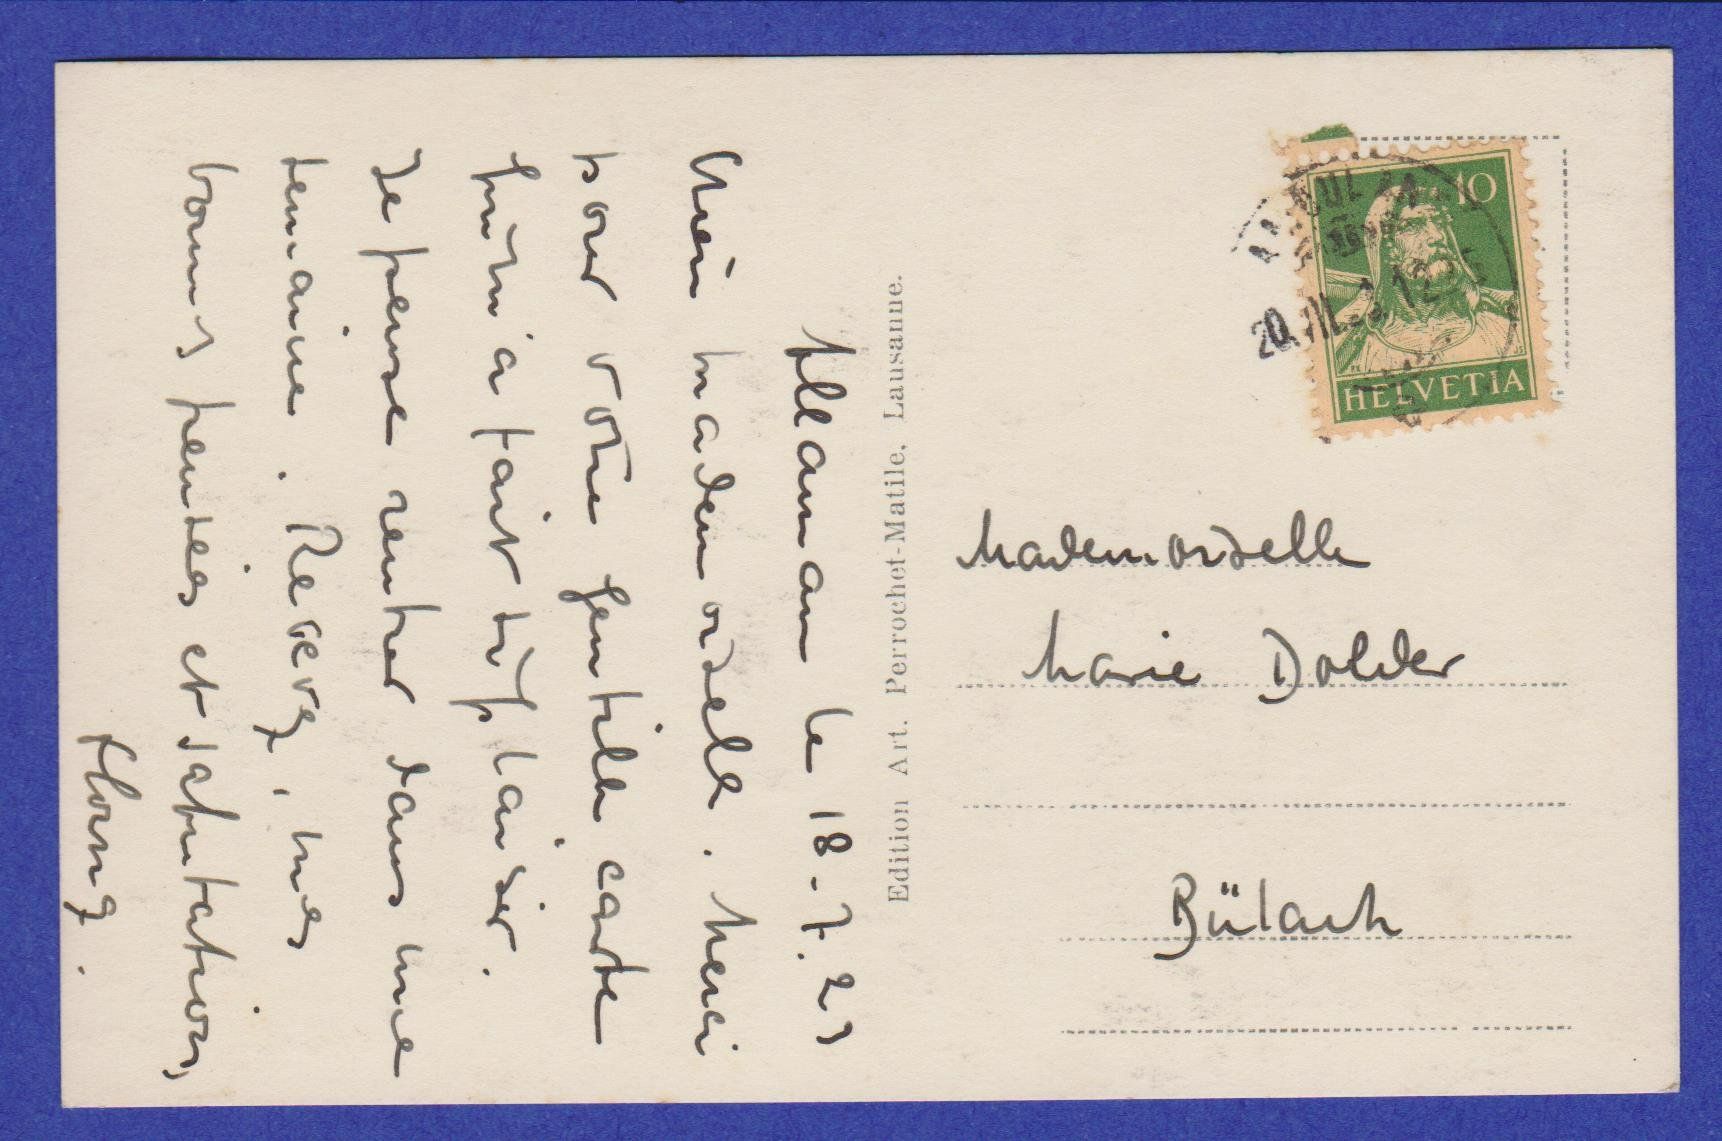 Allaman le 18-7.23
Chère mademoiselle. Merci
pour votre gentille carte
qui m'a fait tr. plaisir.
Je pense rentrer dans une
semaine. Recevez, mes
bonnes pensées et salutations,
Edition Art. Perrochet-Matile, Lausanne.
10
HELVETIA
20.VII.23.12
Mademoiselle
Marie Dolder
Bülach